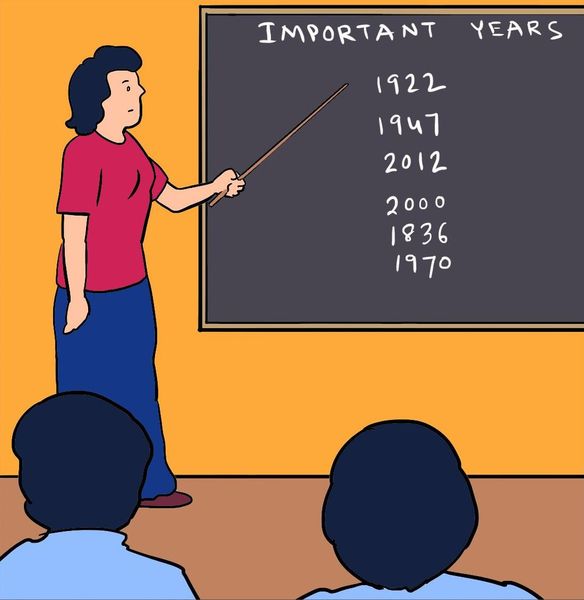 IMPORTANT YEARS
1922
1947
2012
2000
1836
1970